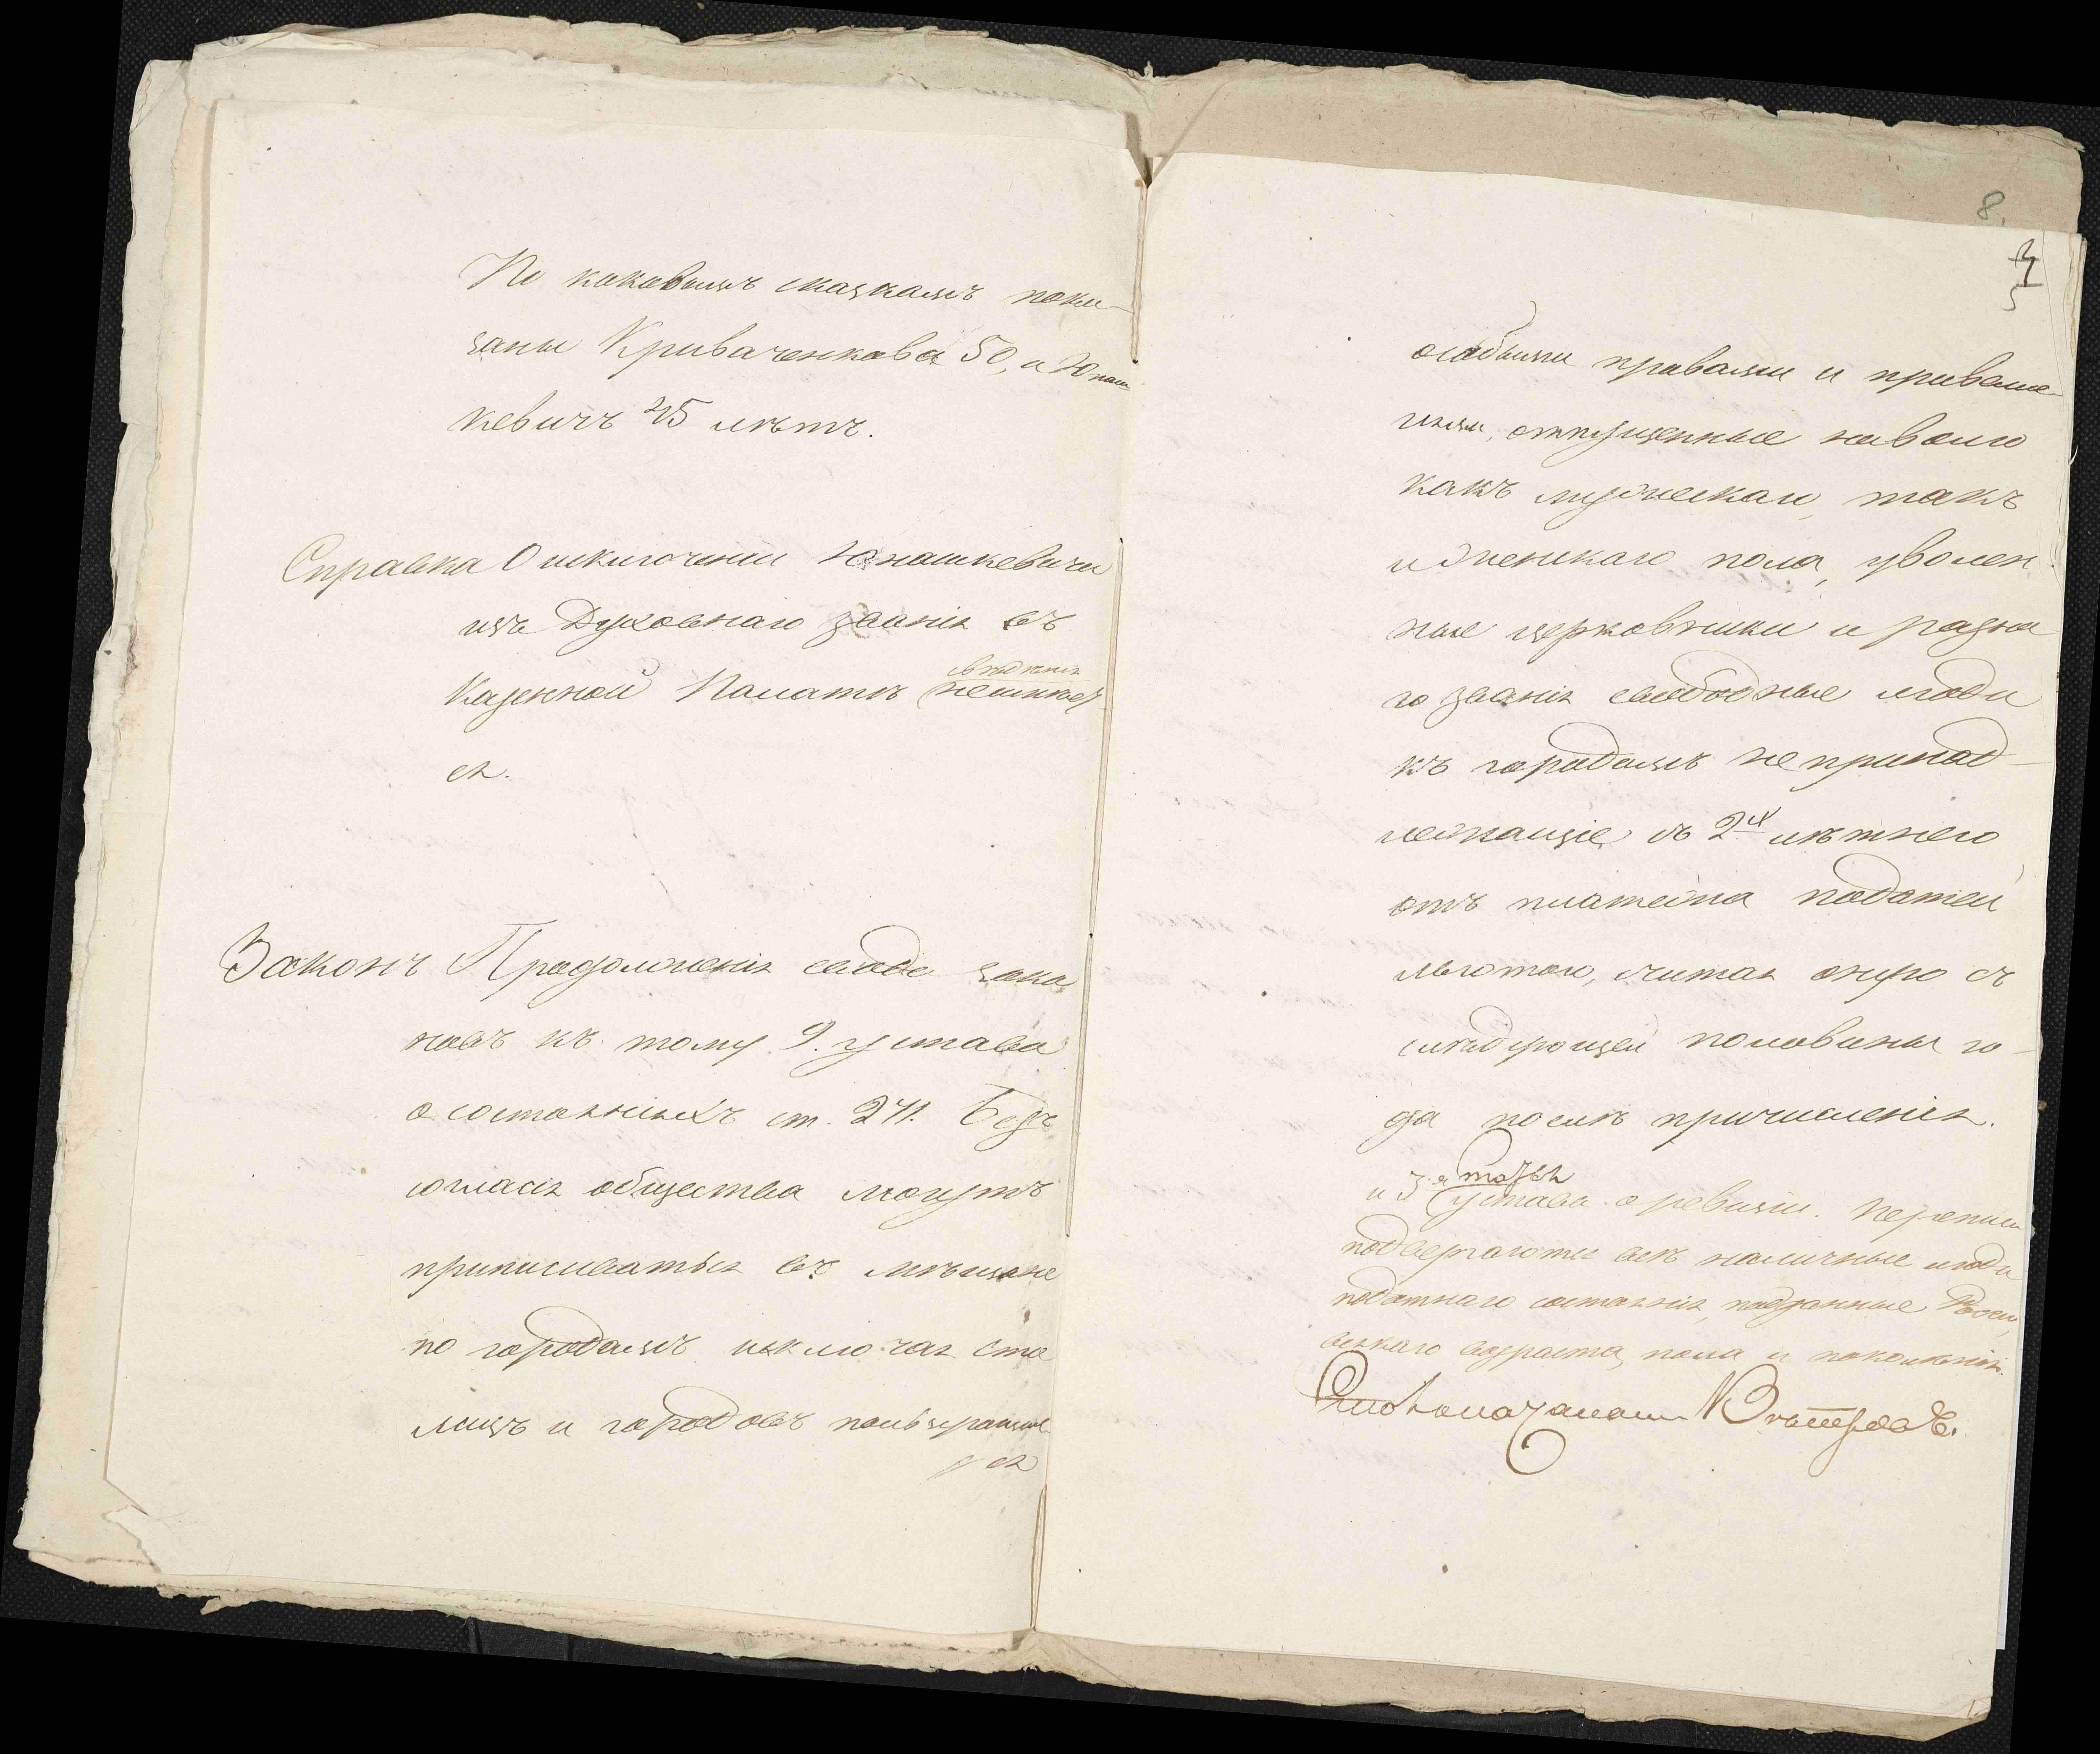 По каковымъ сказкамъ пока-
заны Криваченкова 50, и Юнаш
кевичъ 45 лѣтъ.
Справка О исключеніи Юнашкевича
изъ Духовнаго званія въ
свѣденія
Казенной Палатѣ неимѣет
ся.
Законъ Продолженія свода зако
новъ къ тому 9. устава
о состояніяхъ ст. 241. Безъ
согласія общества могутъ
приписываться въ мѣщане
по городамъ исключая сто
лицъ и городовъ пользующих
ся
8.
5
особыми правами и привеле-
гіями, отпущенные наволю
какъ мужескаго, такъ
и женскаго пола, уволен
ные церковники и разна
го званія свободные люди
къ городамъ непринад-
лежащіе съ 2х лѣтнего
отъ платежа податей
льготою, считая оную съ
слѣдующей половины го-
да послѣ причисленія.
статья
и 3я устава о ревизіи. Переписи
подвергаются всѣ наличные люди
податнаго состоянія, подданные Россіи,
всякаго возраста, пола и поколѣнія.
Столоначальникъ